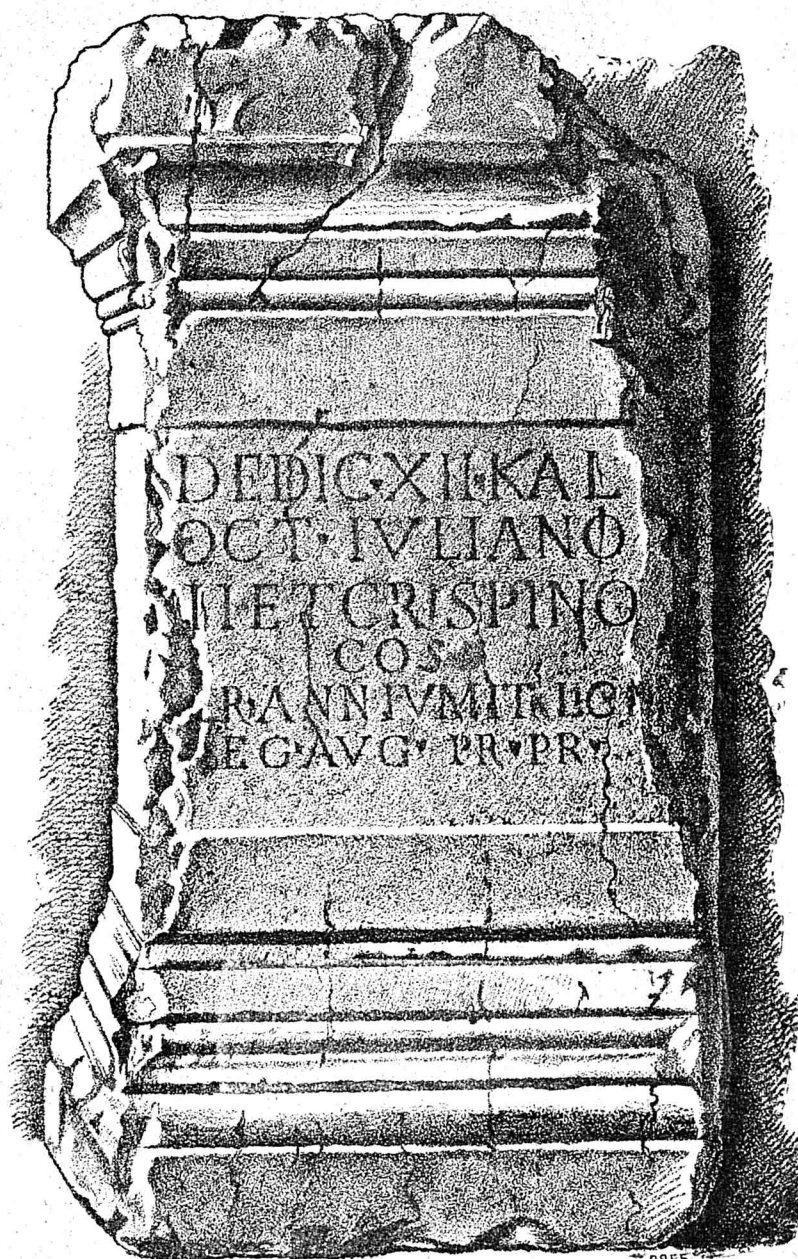 DEDIC·XII·KAL
OCT·IVLIANO
II·ET CRISPINO
COS
ANNIVM
EG·AVG·PR·PR·